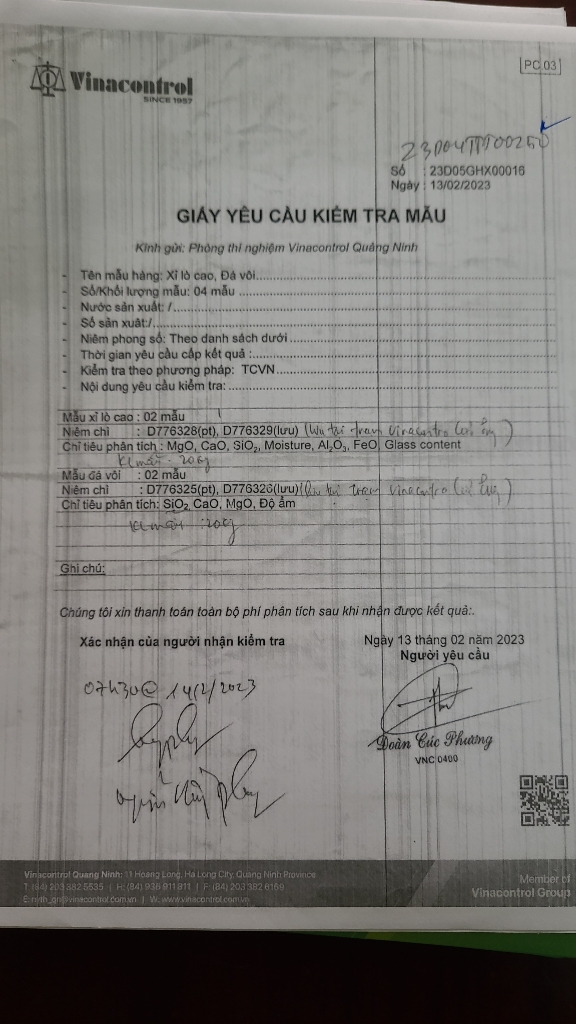 PC 03
Vinacontrol
SINCE 1957
23D04TTT00250
Số : 23D05GHX00016
Ngày : 13/02/2023
GIẤY YÊU CẦU KIỂM TRA MẪU
Kính gửi: Phòng thí nghiệm Vinacontrol Quảng Ninh
- Tên mẫu hàng: Xỉ lò cao, Đá vôi
- Số/Khối lượng mẫu: 04 mẫu
- Nước sản xuất: /
- Số sản xuất:/
- Niêm phong số: Theo danh sách dưới
- Thời gian yêu cầu cấp kết quả :
- Kiểm tra theo phương pháp: TCVN
- Nội dung yêu cầu kiểm tra:
Mẫu xỉ lò cao : 02 mẫu
Niêm chì : D776328(pt), D776329(lưu) (lưu tại trạm Vinacontrol)
Chỉ tiêu phân tích : MgO, CaO, SiO₂, Moisture, Al₂O₃, FeO, Glass content
KL mẫu: 20kg
Mẫu đá vôi : 02 mẫu
Niêm chì : D776325(pt), D776326(lưu) (lưu tại trạm Vinacontrol)
Chỉ tiêu phân tích: SiO₂, CaO, MgO, Độ ẩm
KL mẫu: 20kg
Ghi chú:
Chúng tôi xin thanh toán toàn bộ phí phân tích sau khi nhận được kết quả:.
Xác nhận của người nhận kiểm tra
Ngày 13 tháng 02 năm 2023
Người yêu cầu
07h30 @ 14/2/2023
Đoàn Cúc Phương
VNC 0400
Vinacontrol Quang Ninh: 11 Hoang Long, Ha Long City, Quang Ninh Province
T: (84) 203 382 5535 | H: (84) 936 911 811 | F: (84) 203 382 6169
W: www.vinacontrol.com.vn
Member of
Vinacontrol Group